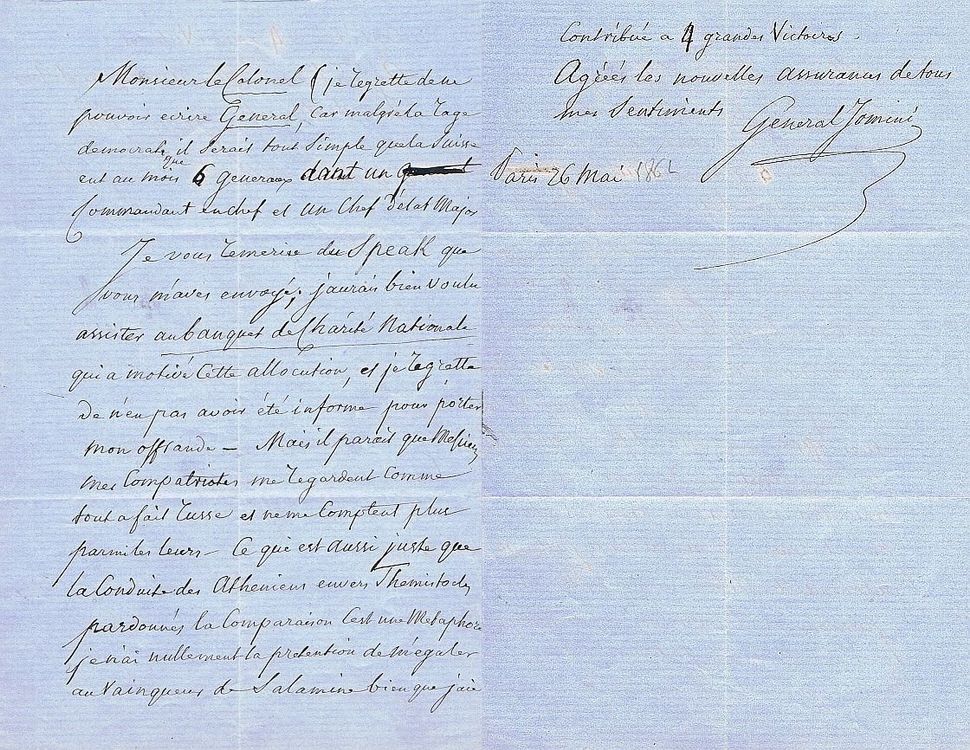 Monsieur le Colonel (je regrette de ne
pouvoir ecrire General, Car malgré la rage
democrate il serait tout simple que la Suisse
eut au mois que 6 generaux dont un
Commandant en chef et un Chef d'état Major
Je vous remercie du Speak que
vous m'aves envoyé; j'aurais bien voulu
assister au banquet de Charité Nationale
qui a motivé Cette allocution, et je regrette
de n'en pas avoir été informé pour porter
mon offrande — Mais il parait que Messieurs
mes Compatriotes me regardent Comme
tout a fait russe et ne me Comptent plus
parmi les leurs — Ce qui est aussi juste que
la Conduite des Atheniens envers Themistocles
pardonnés la Comparaison C'est une Metaphore
je n'ai nullement la pretention de m'égaler
au Vainqueur de Salamine bien que j'aie
Contribué a 4 grandes Victoires.
Agréés les nouvelles assurances de tous
mes Sentiments
General Jomini
Paris 26 Mai 1862